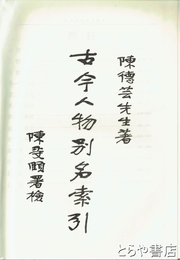 陳德芸先生著
古今人物别名索引
陳受頤署檢
とらや書店